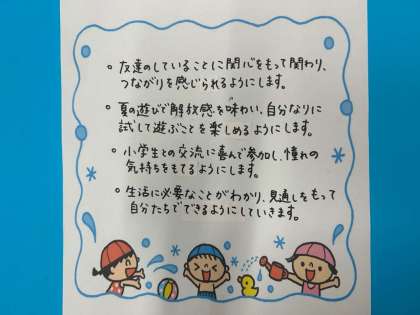 ○ 友達のしていることに関心をもって関わり、
つながりを感じられるようにします。
○ 夏の遊びで解放感を味わい、自分なりに
試して遊ぶことを楽しめるようにします。
○ 小学生との交流に喜んで参加し、憧れの
気持ちをもてるようにします。
○ 生活に必要なことがわかり、見通しをもって
自分たちでできるようにしていきます。